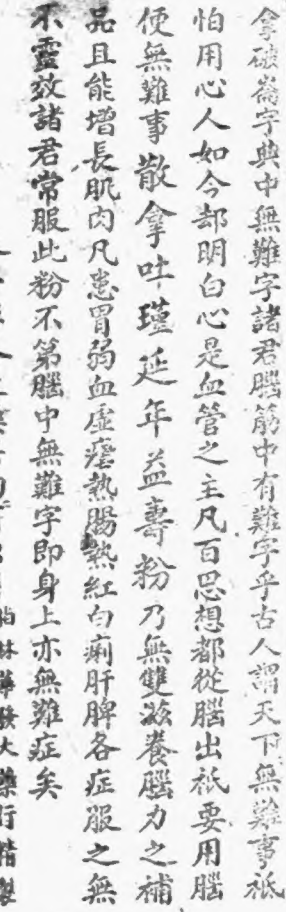 拿破崙字典中無難字諸君腦筋中有難字乎古人謂天下無難事祇
怕用心人如今却明白心是血管之主凡百思想都從腦出祇要用腦
便無難事散拿吐瑾延年益壽粉乃無雙滋養腦力之補
品且能增長肌肉凡患胃弱血虛瘧熱腸熱紅白痢肝脾各症服之無
不靈效諸君常服此粉不第腦中無難字即身上亦無難症矣
大藥行精製